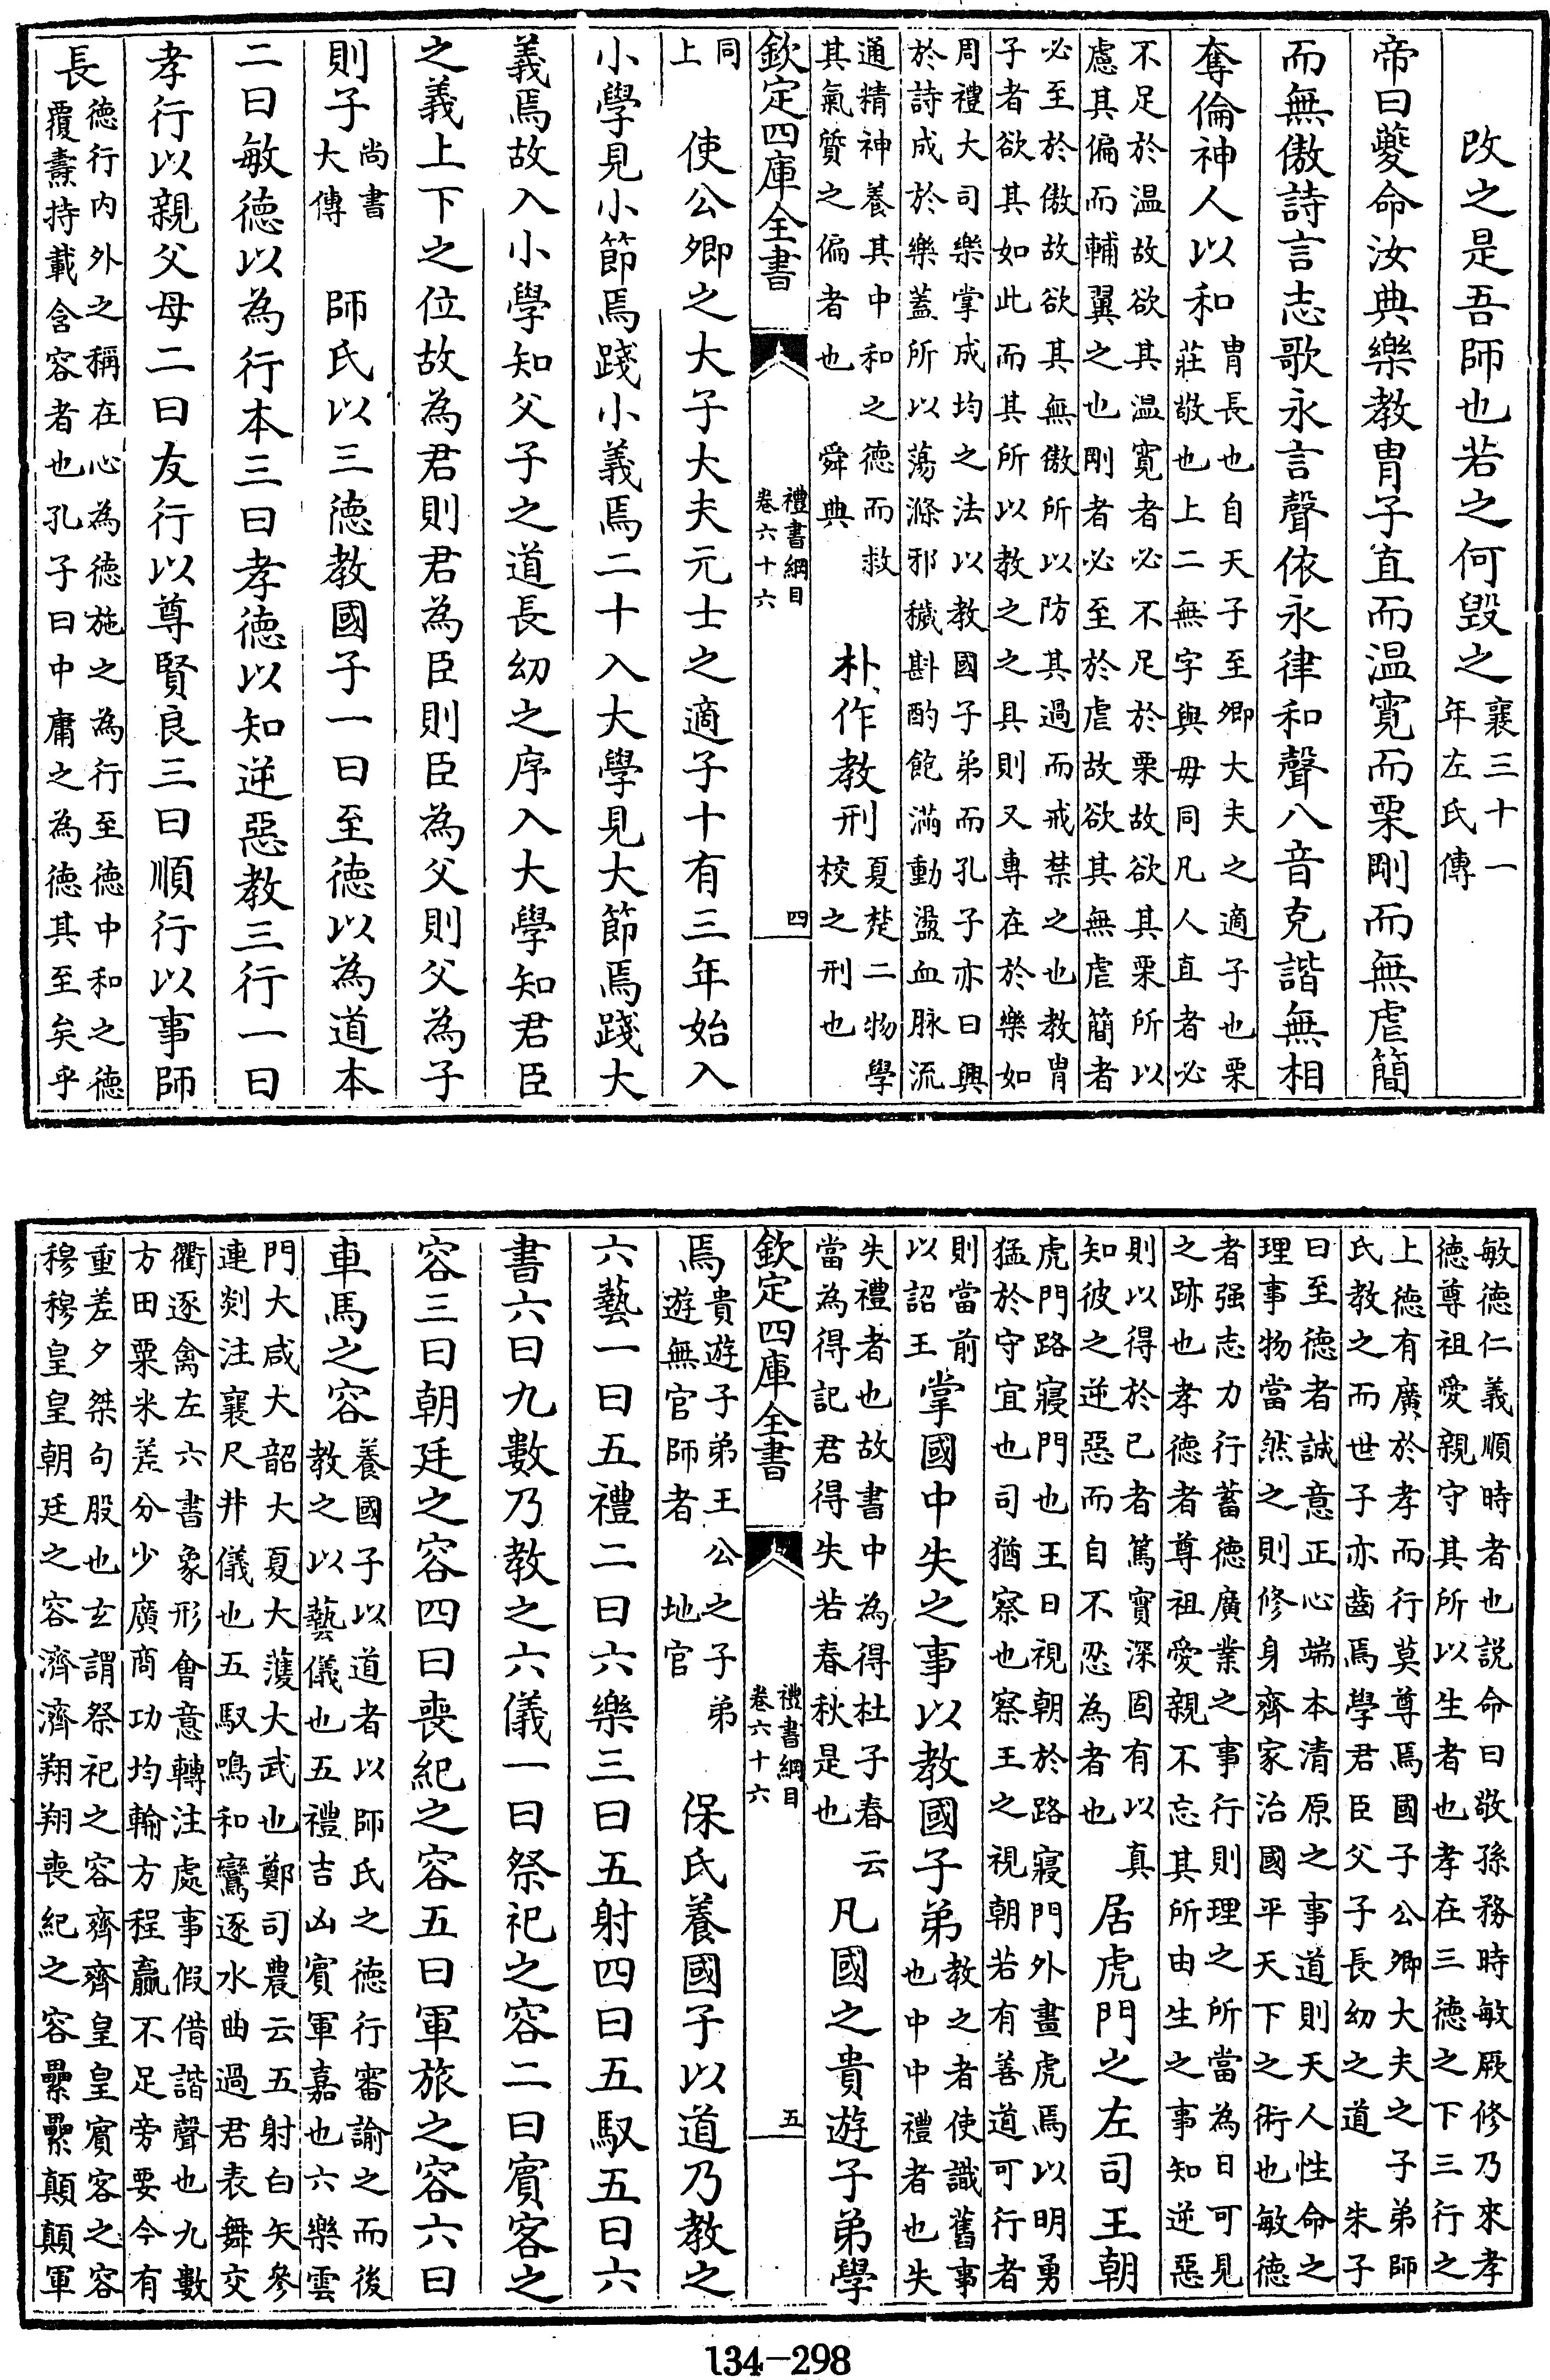 改之是吾師也若之何毁之襄三十一年左氏傳
帝曰夔命汝典樂教胄子直而温寛而栗剛而無虐簡
而無傲詩言志歌永言聲依永律和聲八音克諧無相
奪倫神人以和胄長也自天子至卿大夫之適子也栗莊敬也上二無字與毋同凡人直者必
不足於温故欲其温寛者必不足於栗故欲其栗所以慮其偏而輔翼之也剛者必至於虐故欲其無虐簡者
必至於傲故欲其無傲所以防其過而戒禁之也教胄子者欲其如此而其所以教之之具則又專在於樂如
周禮大司樂掌成均之法以教國子弟而孔子亦曰興於詩成於樂蓋所以蕩滌邪穢斟酌飽滿動盪血脉流
通精神養其中和之德而救其氣質之偏者也 舜典 朴作教刑夏楚二物學校之刑也
欽定四庫全書 禮書綱目 卷六十六 四
同上 使公卿之大子大夫元士之適子十有三年始入
小學見小節焉踐小義焉二十入大學見大節焉踐大
義焉故入小學知父子之道長幼之序入大學知君臣
之義上下之位故為君則君為臣則臣為父則父為子
則子尚書大傳 師氏以三德教國子一曰至德以為道本
二曰敏德以為行本三曰孝德以知逆惡教三行一曰
孝行以親父母二曰友行以尊賢良三曰順行以事師
長德行内外之稱在心為德施之為行至德中和之德覆燾持載含容者也孔子曰中庸之為德其至矣乎
敏德仁義順時者也説命曰敬孫務時敏厥修乃來孝德尊祖愛親守其所以生者也孝在三德之下三行之
上德有廣於孝而行莫尊焉國子公卿大夫之子弟師氏教之而世子亦齒焉學君臣父子長幼之道 朱子
曰至德者誠意正心端本清原之事道則天人性命之理事物當然之則修身齊家治國平天下之術也敏德
者强志力行蓄德廣業之事行則理之所當為日可見之跡也孝德者尊祖愛親不忘其所由生之事知逆惡
則以得於已者篤實深固有以真知彼之逆惡而自不忍為者也 居虎門之左司王朝
虎門路寢門也王日視朝於路寢門外畫虎焉以明勇猛於守宜也司猶察也察王之視朝若有善道可行者
則當前以詔王 掌國中失之事以教國子弟教之者使識舊事也中中禮者也失
失禮者也故書中為得杜子春云當為得記君得失若春秋是也 凡國之貴遊子弟學
欽定四庫全書 禮書綱目 卷六十六 五
焉貴遊子弟王公之子弟遊無官師者 地官 保氏養國子以道乃教之
六藝一曰五禮二曰六樂三曰五射四曰五馭五曰六
書六曰九數乃教之六儀一曰祭祀之容二曰賓客之
容三曰朝廷之容四曰喪紀之容五曰軍旅之容六曰
車馬之容養國子以道者以師氏之德行審諭之而後教之以藝儀也五禮吉凶賓軍嘉也六樂雲
門大咸大韶大夏大濩大武也鄭司農云五射白矢參連剡注襄尺井儀也五馭鳴和鸞逐水曲過君表舞交
衢逐禽左六書象形會意轉注處事假借諧聲也九數方田粟米差分少廣商功均輸方程贏不足旁要今有
重差夕桀句股也玄謂祭祀之容齊齊皇皇賓客之容穆穆皇皇朝廷之容濟濟翔翔喪紀之容纍纍顛顛軍
134-298